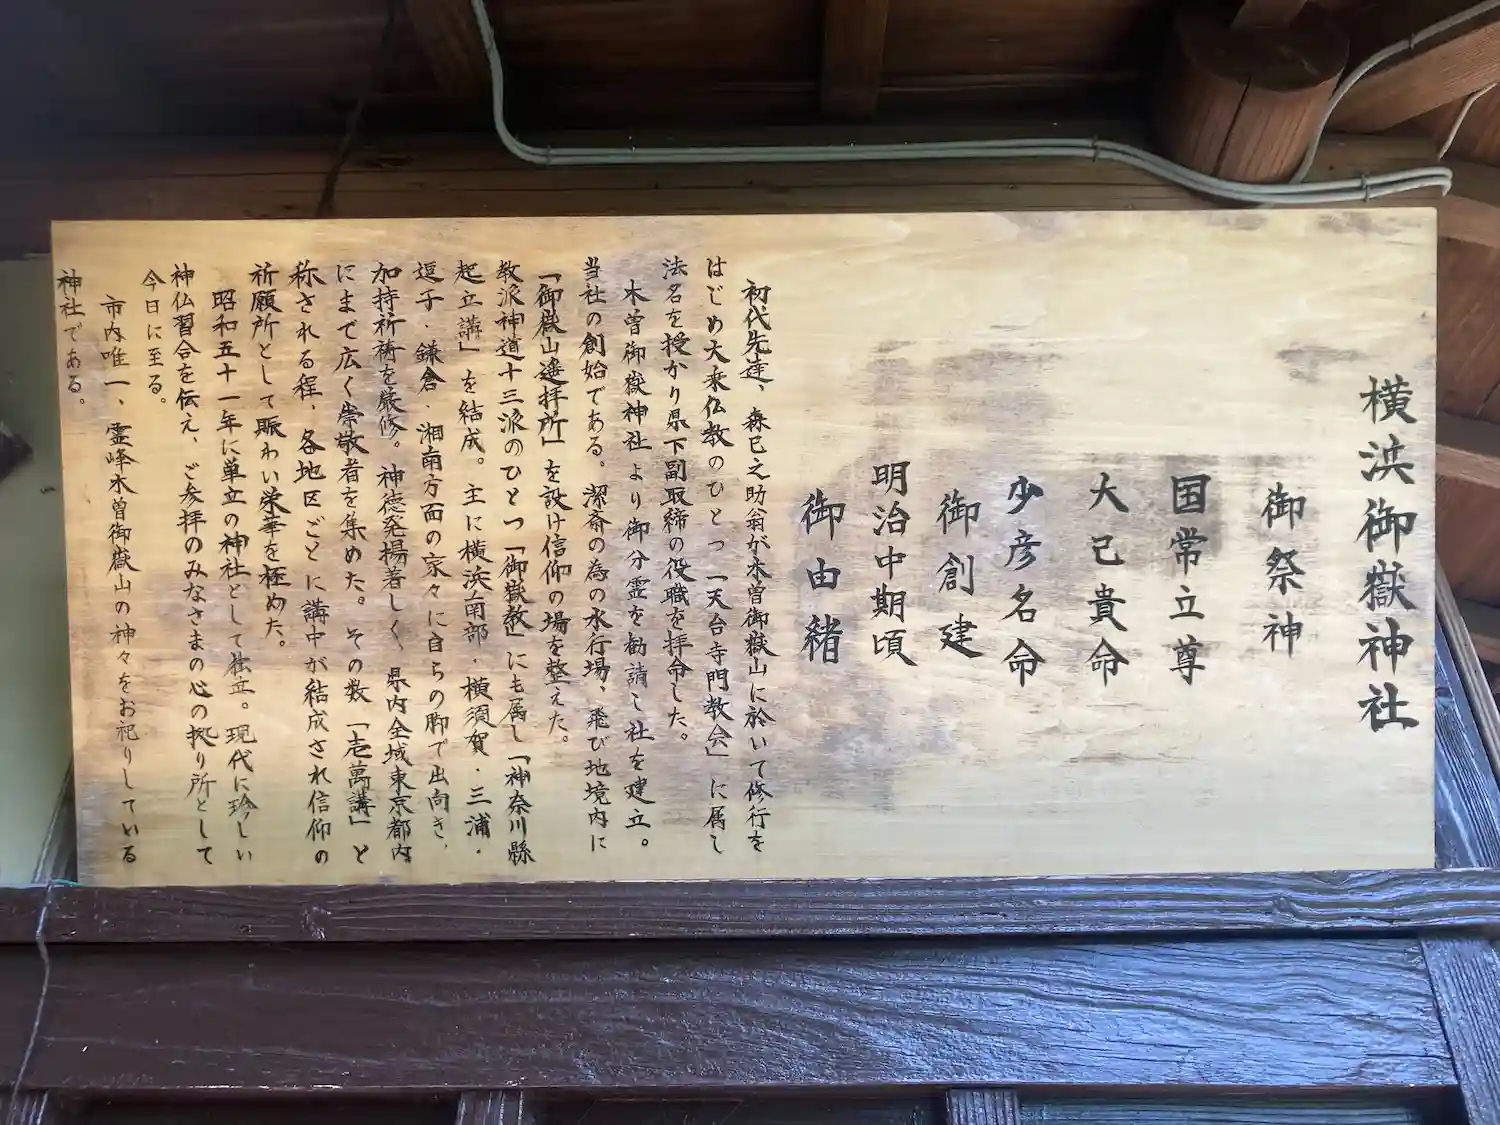 横浜御嶽神社
御祭神
国常立尊
大己貴命
少彦名命
御創建
明治中期頃
御由緒
初代先達、森巳之助翁が木曽御嶽山に於いて修行を
はじめ大乗仏教のひとつ「天台寺門教会」に属し
法名を授かり県下副取締の役職を拝命した。
木曽御嶽神社より御分霊を勧請し社を建立。
当社の創始である。潔斎の為の水行場、飛び地境内に
「御嶽山遥拝所」を設け信仰の場を整えた。
教派神道十三派のひとつ「御嶽教」にも属し「神奈川縣
起立講」を結成。主に横浜南部・横須賀・三浦・
逗子・鎌倉・湘南方面の家々に自らの脚で出向き、
加持祈祷を厳修。神徳発揚著しく、県内全域東京都内
にまで広く崇敬者を集めた。その数「壱萬講」と
称される程、各地区ごとに講中が結成され信仰の
祈願所として賑わい栄華を極めた。
昭和五十一年に単立の神社として独立。現代に珍しい
神仏習合を伝え、ご参拝のみなさまの心の拠り所として
今日に至る。
市内唯一、霊峰木曽御嶽山の神々をお祀りしている
神社である。